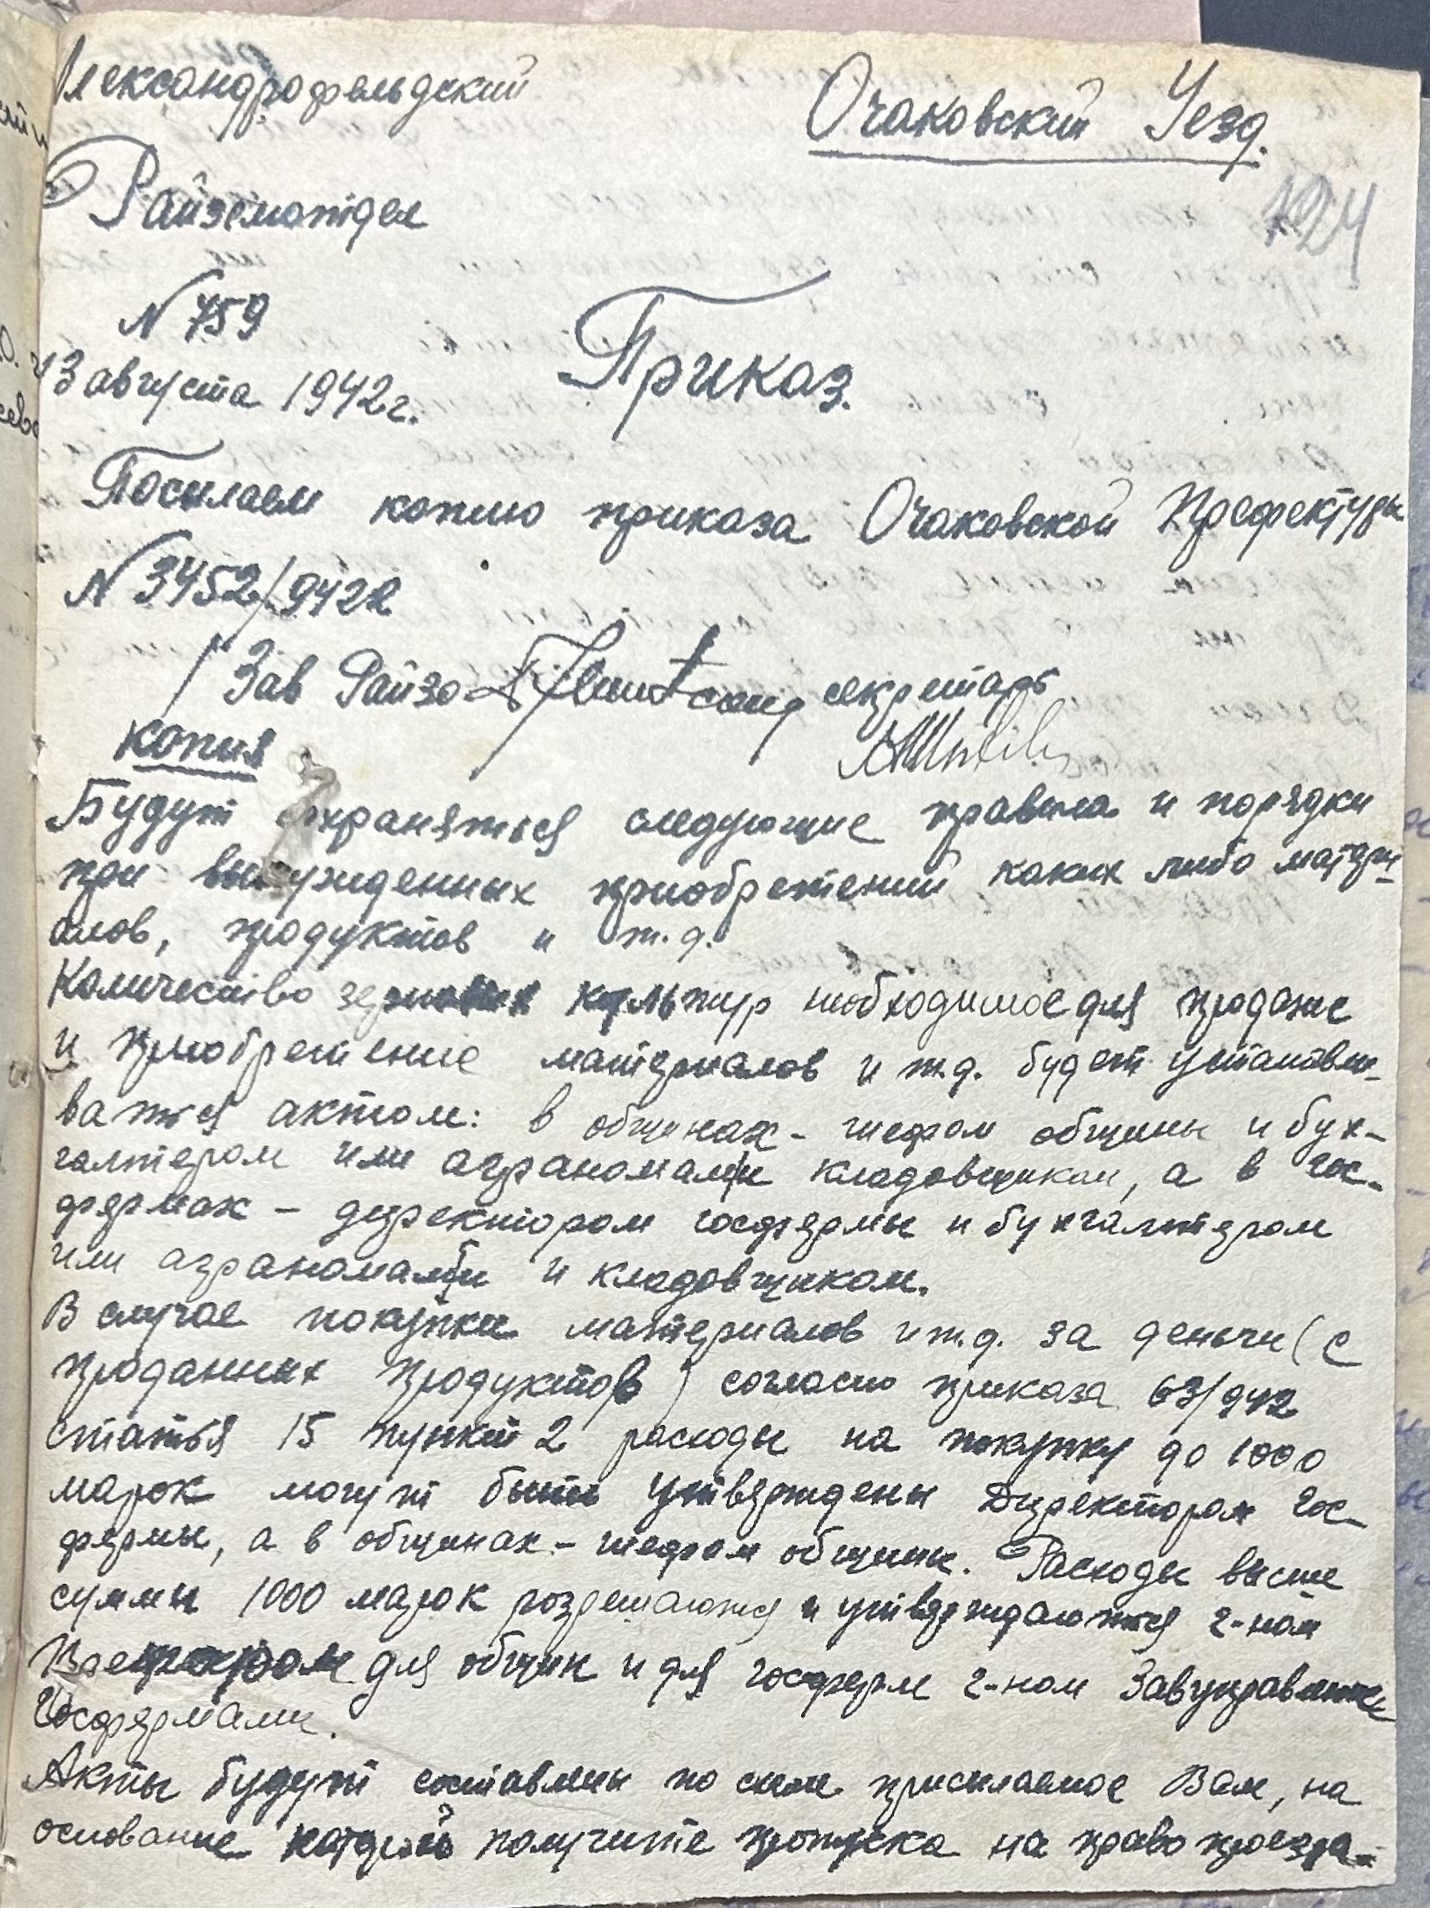 Александрофельдский
Очаковский Уезд.
Райземотдел
124
N 759
13 августа 1942 г.
Приказ.
Посылаем копию приказа Очаковской Префектуры
N 3452/942 г
Зав Райзо секретарь
копия
Будут охраняться следующие правила и порядки
при вынужденных приобретений каких либо матери-
алов, продуктов и т.д.
Количество зерновых культур необходимое для продаже
и приобретение материалов и т.д. будет устанавли-
ваться актом: в общинах - шефом общины и бух-
галтером или аграномами кладовщиком, а в гос-
фермах - директором госфермы и бухгалтером
или аграномами и кладовщиком.
В случае покупки материалов и т.д. за деньги (с
проданных продуктов) согласно приказа 63/942
статья 15 пункт 2 расходы на покупку до 1000
марок могут быть утверждены Директором гос-
фермы, а в общинах - шефом общины. Расходы выше
суммы 1000 марок розрешаются и утверждаются г-ном
Претором для общин и для госферм г-ном Завуправление
Госфермами.
Акты будут составлены по схеме присылаемое Вам, на
основание которой получите пропуска на право проезда-